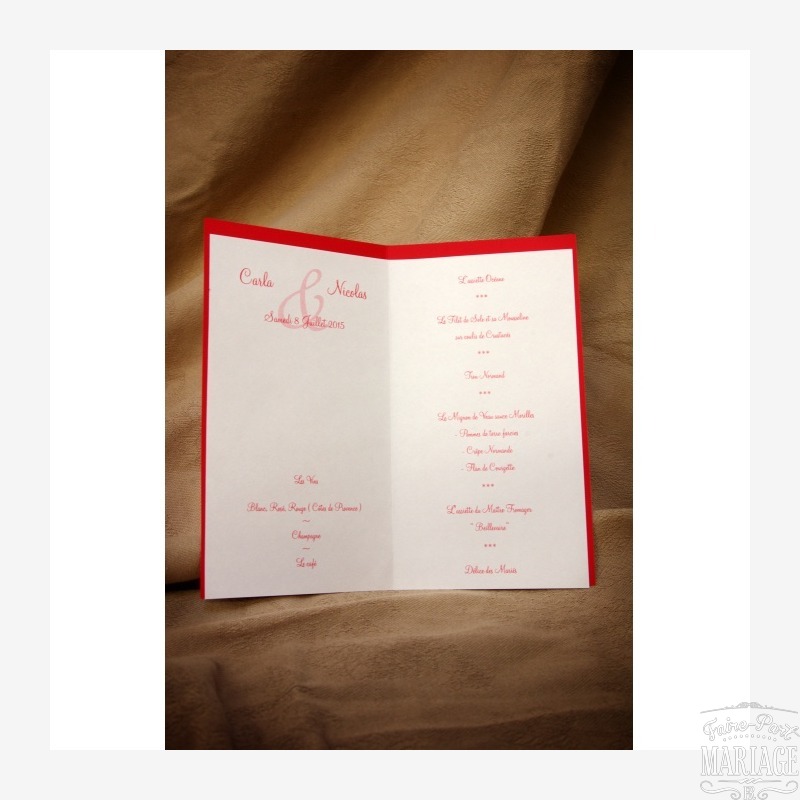 Carla & Nicolas
Samedi 8 Juillet 2015
Les Vins
Blanc, Rosé, Rouge ( Côtes de Provence )
~
Champagne
~
Le café
L'assiette Océane
***
Le Filet de Sole et sa Mousseline
aux coulis de Crustacés
***
Trou Normand
***
Le Mignon de Veau sauce Morilles
- Pommes de terre farcies
- Crêpe Normande
- Flan de Courgette
***
L'assiette du Maître Fromager
***
Délice des Mariés
Faire-Part
MARIAGE